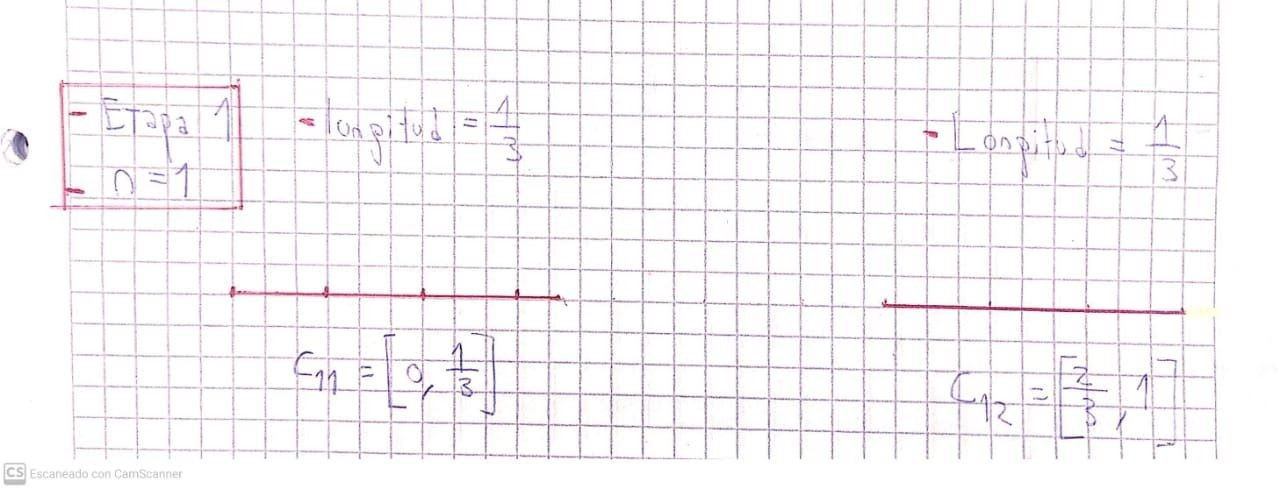 - Etapa 1
- n = 1
- longitud = 1/3
- Longitud = 1/3
C11 = [0, 1/3]
C12 = [2/3, 1]
CS Escaneado con CamScanner